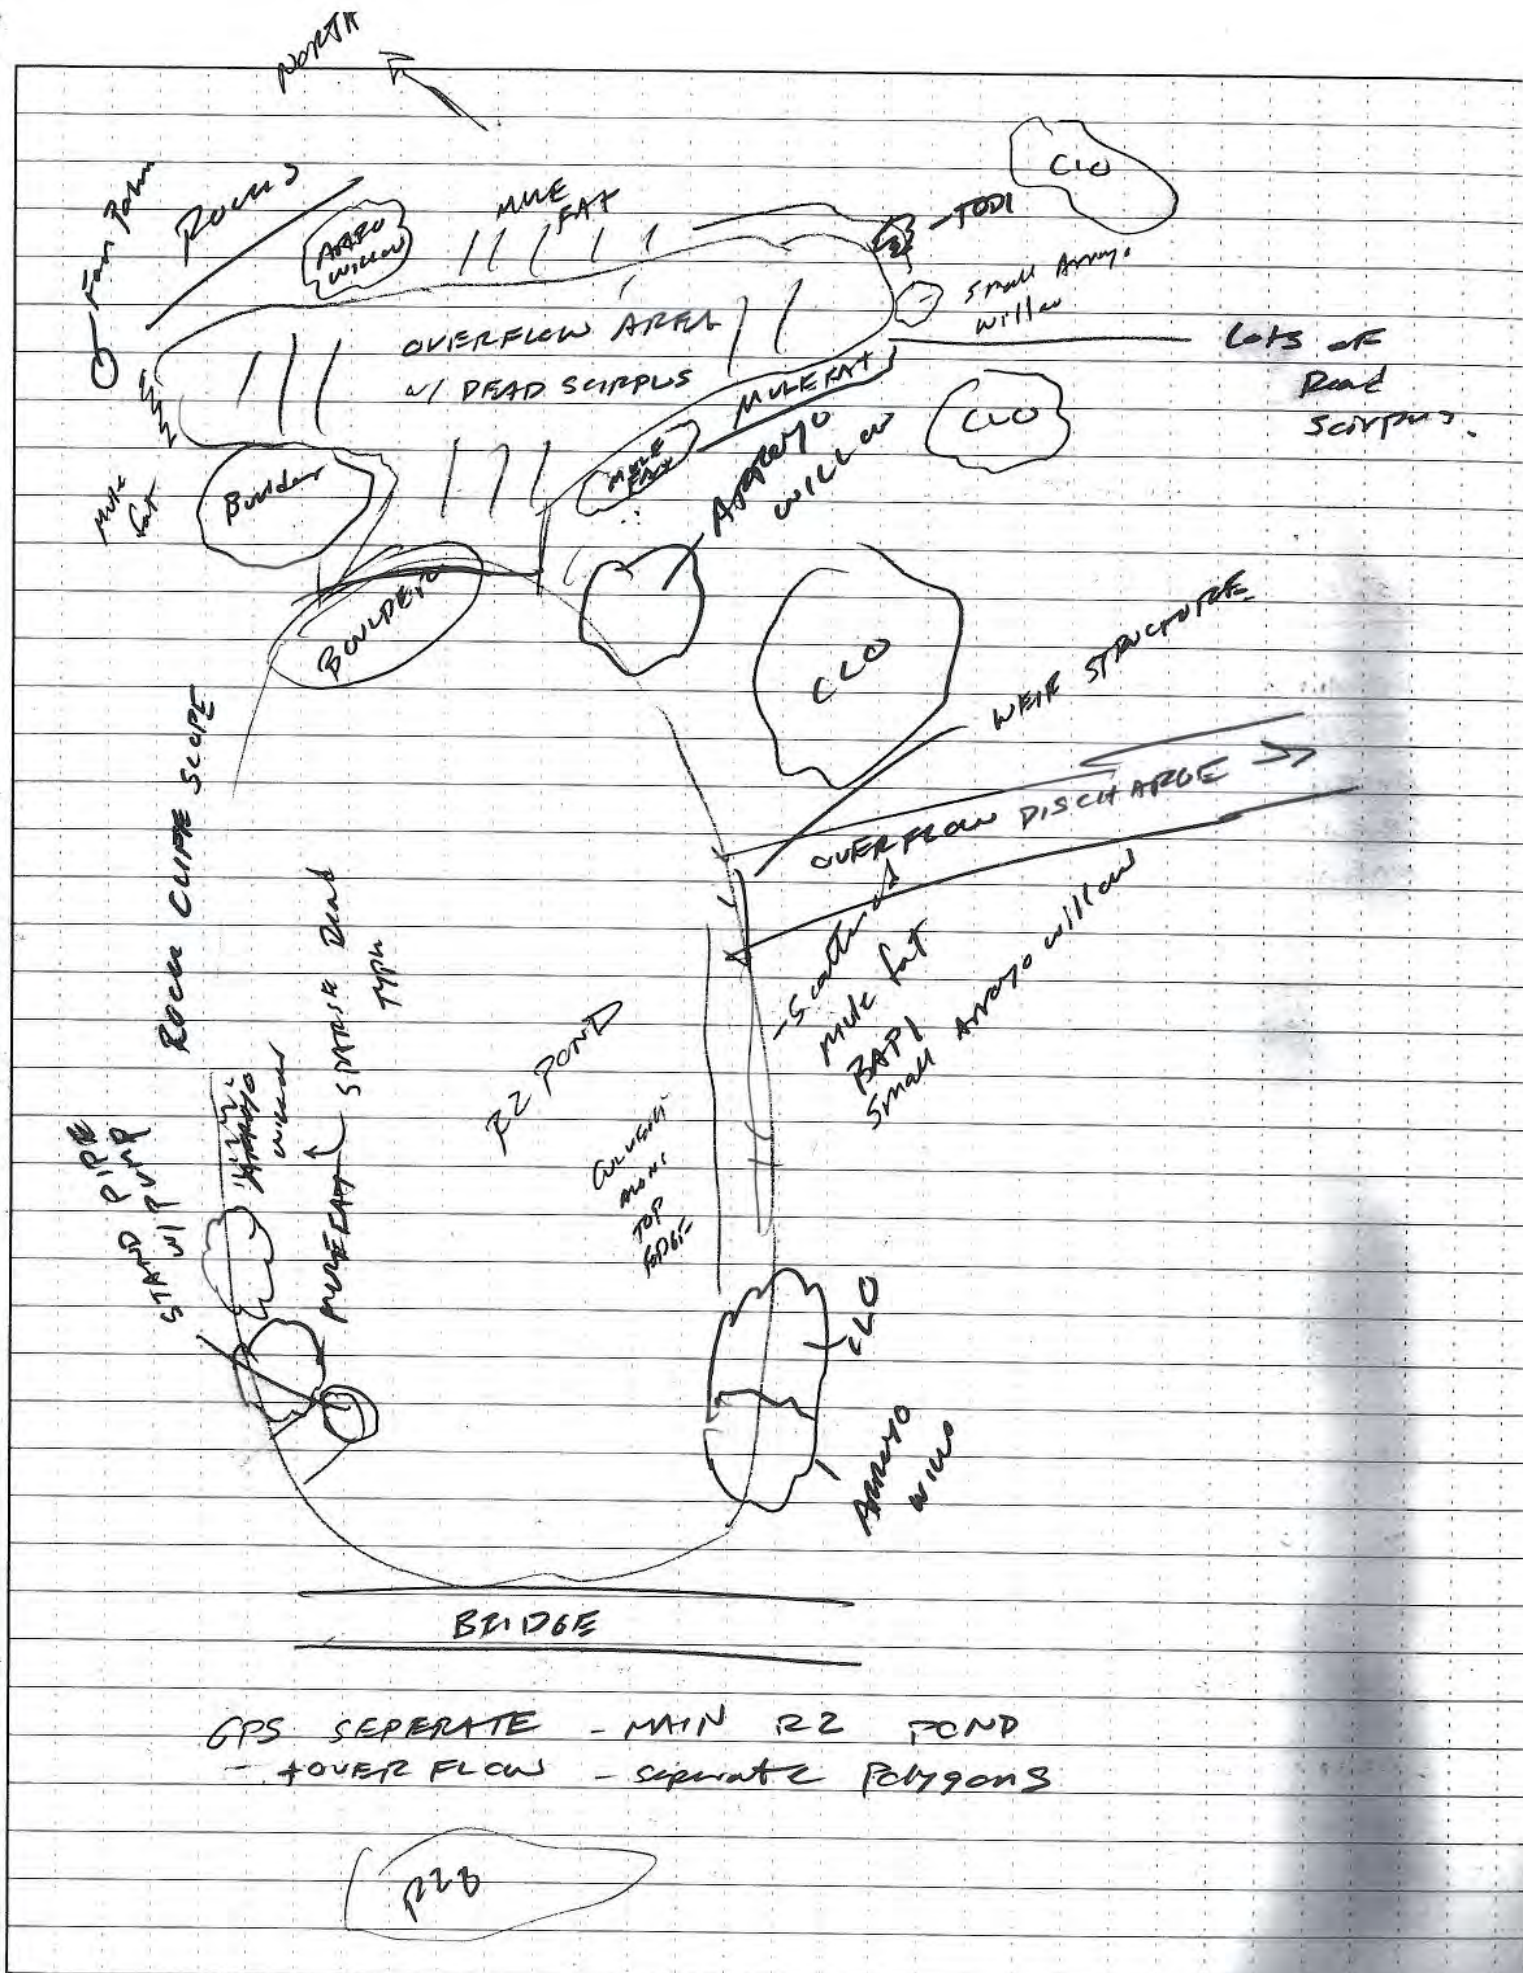 NORTH
Fan Palm
ROCKS
ARROYO
WILLOW
MULE
FAT
CLO
-TODI
Small Arroyo
willow
OVERFLOW AREA
w/ DEAD SCIRPUS
Lots of
Dead
Scirpus.
MULE FAT
CLO
MULE
FAT
ARROYO
WILLOW
Mule
fat
Boulder
BOULDER
CLO
WEIR STRUCTURE
OVERFLOW DISCHARGE
ROCK SLOPE
-Scattered
Mule fat
BAPI
Small Arroyo willow
SPARSE Dead
TYPH
R2 POND
ARROYO
WILLOW
MULEFAT
STAND PIPE
W/ PUMP
ALONG
TOP
EDGE
CLO
ARROYO
WILLO
BRIDGE
GPS SEPERATE - MAIN R2 POND
- + OVERFLOW - seperate Polygons
R2B